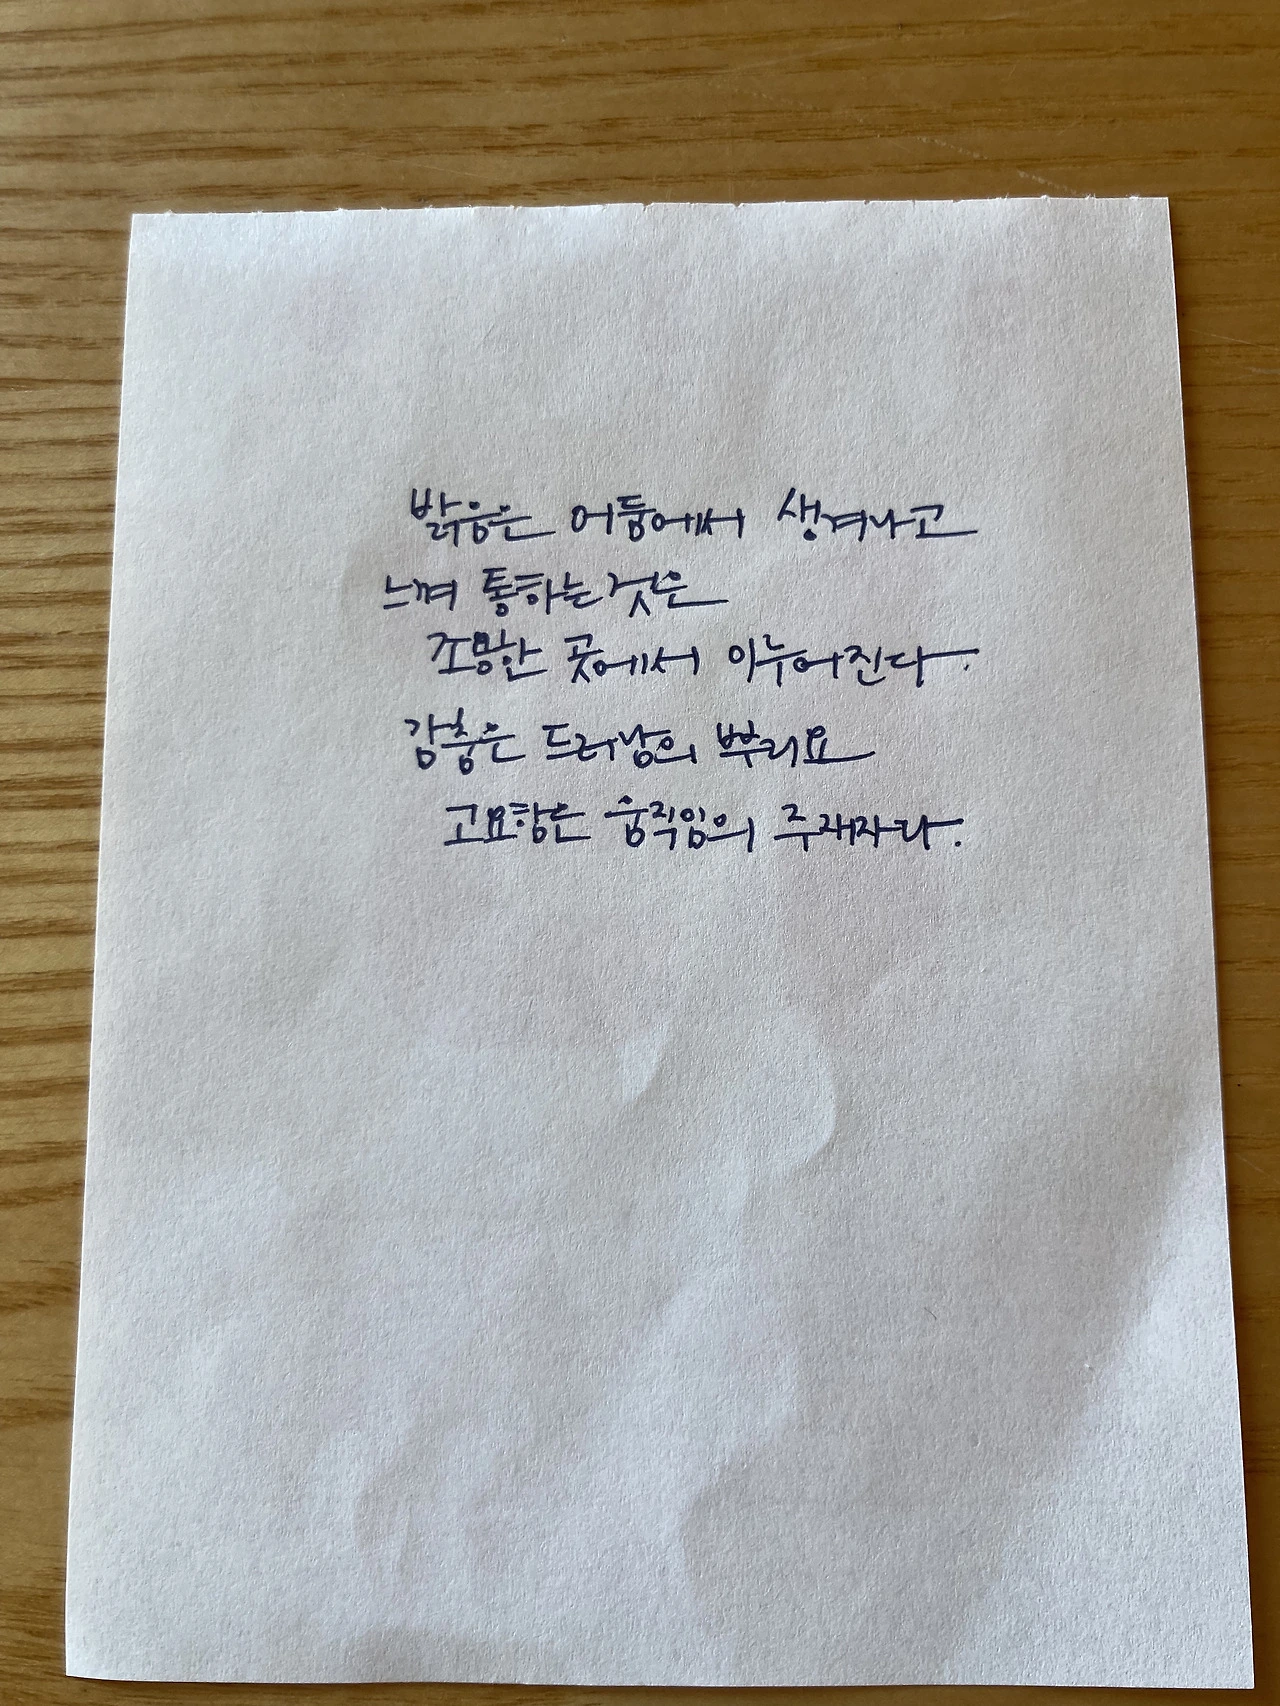 밝음은 어둠에서 생겨나고
느껴 통하는 것은
조망한 곳에서 이누어진다.
감춤은 드러남의 뿌리요
고요함은 움직임의 주재자라.